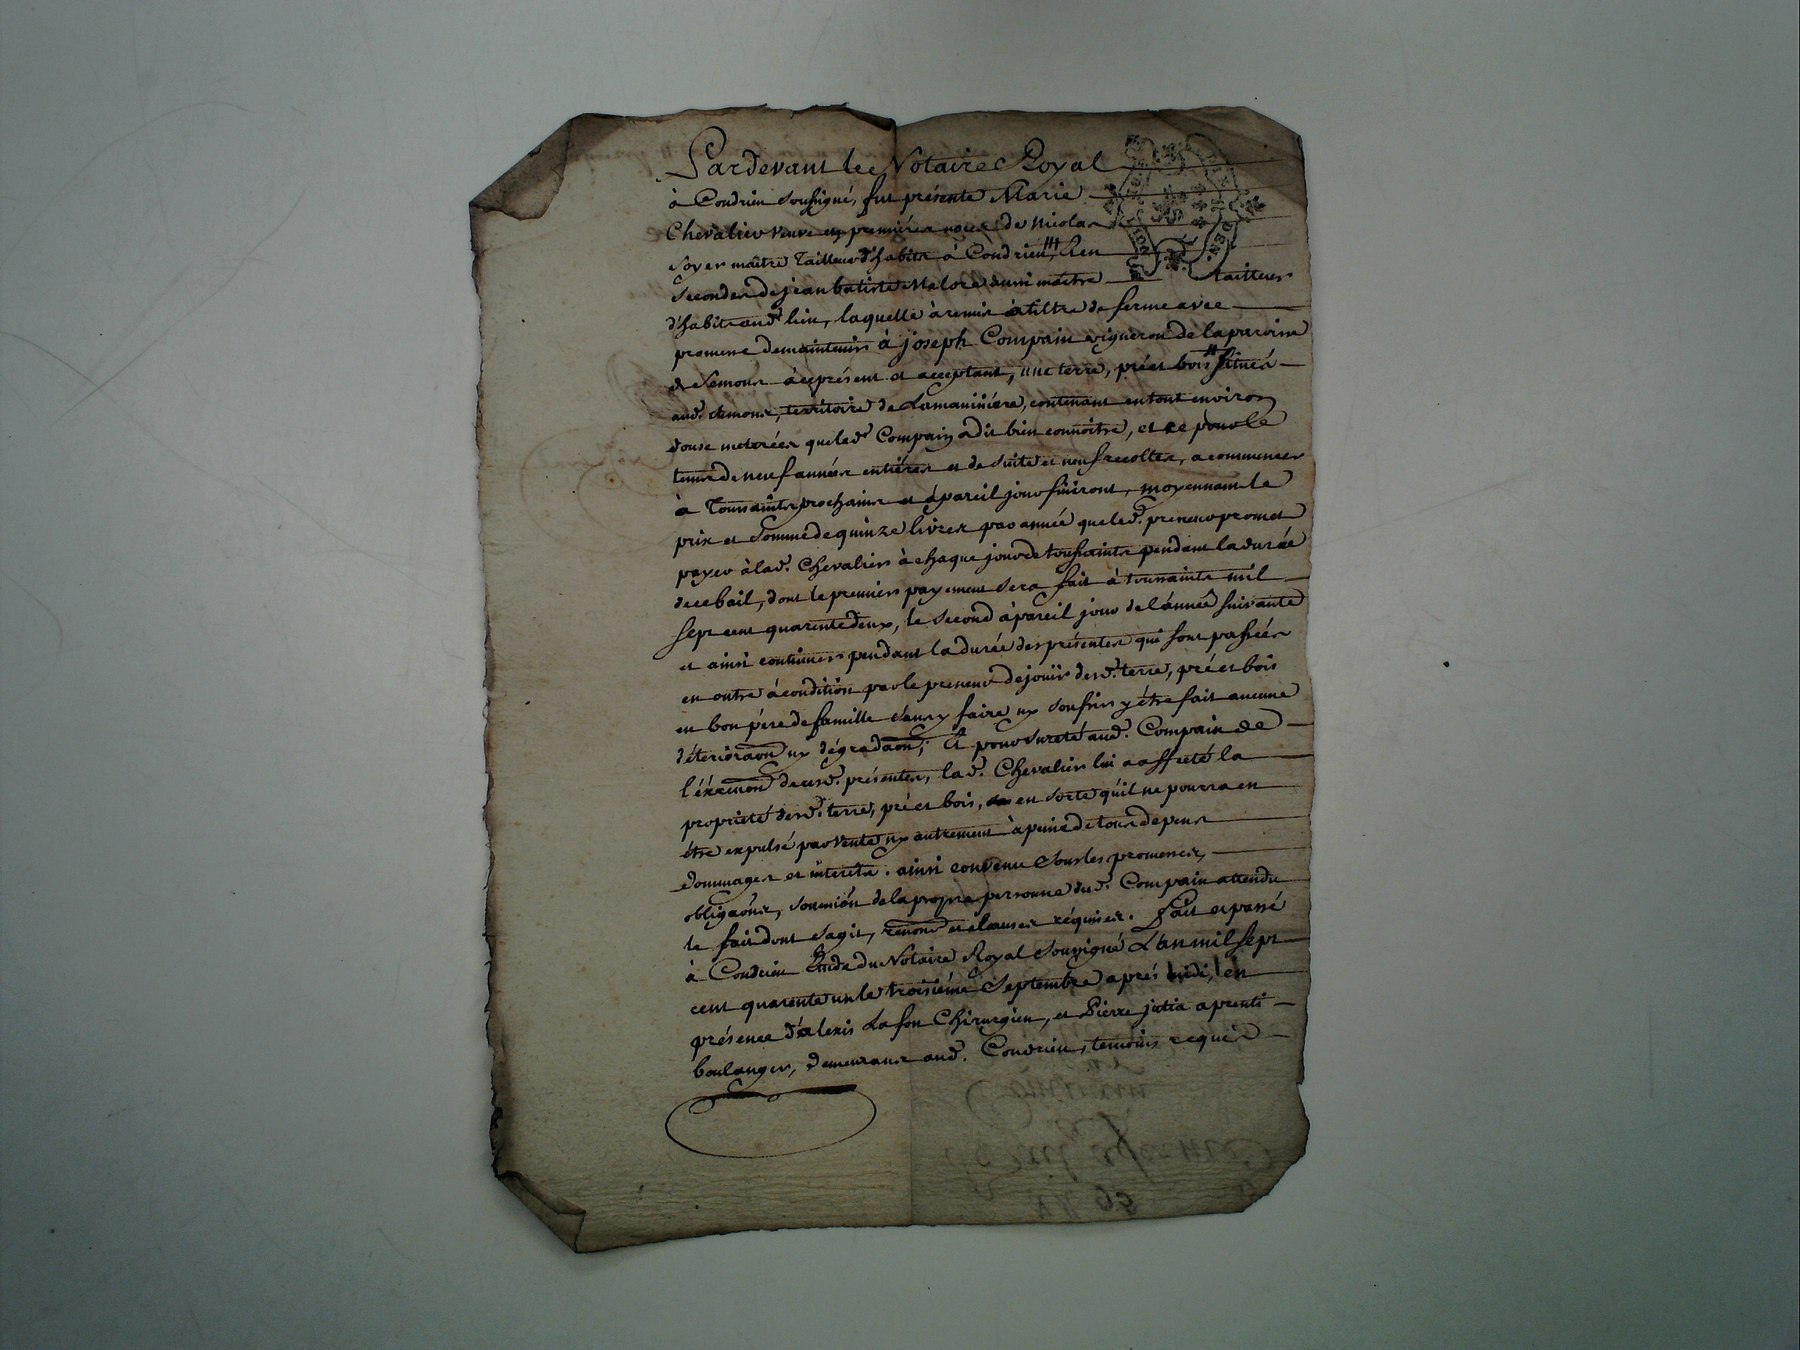 Pardevant le Notaire Royal
à Condrieu soussigné, fut présente Marie
Chevalier veuve en premières noces de Nicolas
Soyer maître Tailleur d'habits à Condrieu, # Een
secondes de jean batiste Malore aussi maître tailleur
d'habits aud.t lieu, laquelle à remis à tiltre de ferme avec
promesse de maintenir à joseph Compain vigneron de la paroisse
de Semons icy présent et acceptant, une terre, pré et bois # situés
aud.t semons, territoire de Lamaninière, contenant en tout environ
douse meterées que led.t Compain a dit bien connoître, et ce pour le
tems de neuf années entières et de suite et neuf recoltes, a commencer
à Toussaints prochains et à pareil jour finiront, moyennant le
prix et somme de quinze livres par année que led.t preneur promet
payer à lad.e Chevalier à chaque jour de toussaints pendant la durée
de ce bail, dont le premier payement sera fait à toussaints mil
sept cent quarente deux, le second à pareil jour de l'année suivante
et ainsi continuer pendant la durée des présentes qui sont passées
en outre à condition par le preneur de joüir desd.t terre, pré et bois
en bon père de famille sans y faire ny soufrir y être fait aucune
déterioraon ny dégradaon; Et pour sureté aud.t Compain de
l'éxécuon de cesd.t présentes, lad.e Chevalier lui a affecté la
propriété desd.t terre, pré et bois, en sorte qu'il ne pourra en
être expulsé par vente ny autrement à peine de tous depens
dommages et intérêts. ainsi convenu sous les promesses,
obligaons, soumiôn de la propre personne dud.t Compain attendu
le fait dont s'agit, renonâ et clauses réquises. Fait et passé
à Condrieu Etude du Notaire Royal soussigné L'an mil sept
cent quarente un le troisième Septembre après midi, en
présence d'alexis Lafon Chirurgien, et Pierre jutia aprenti
boulanger, demeurans aud.t Condrieu, temoins requis